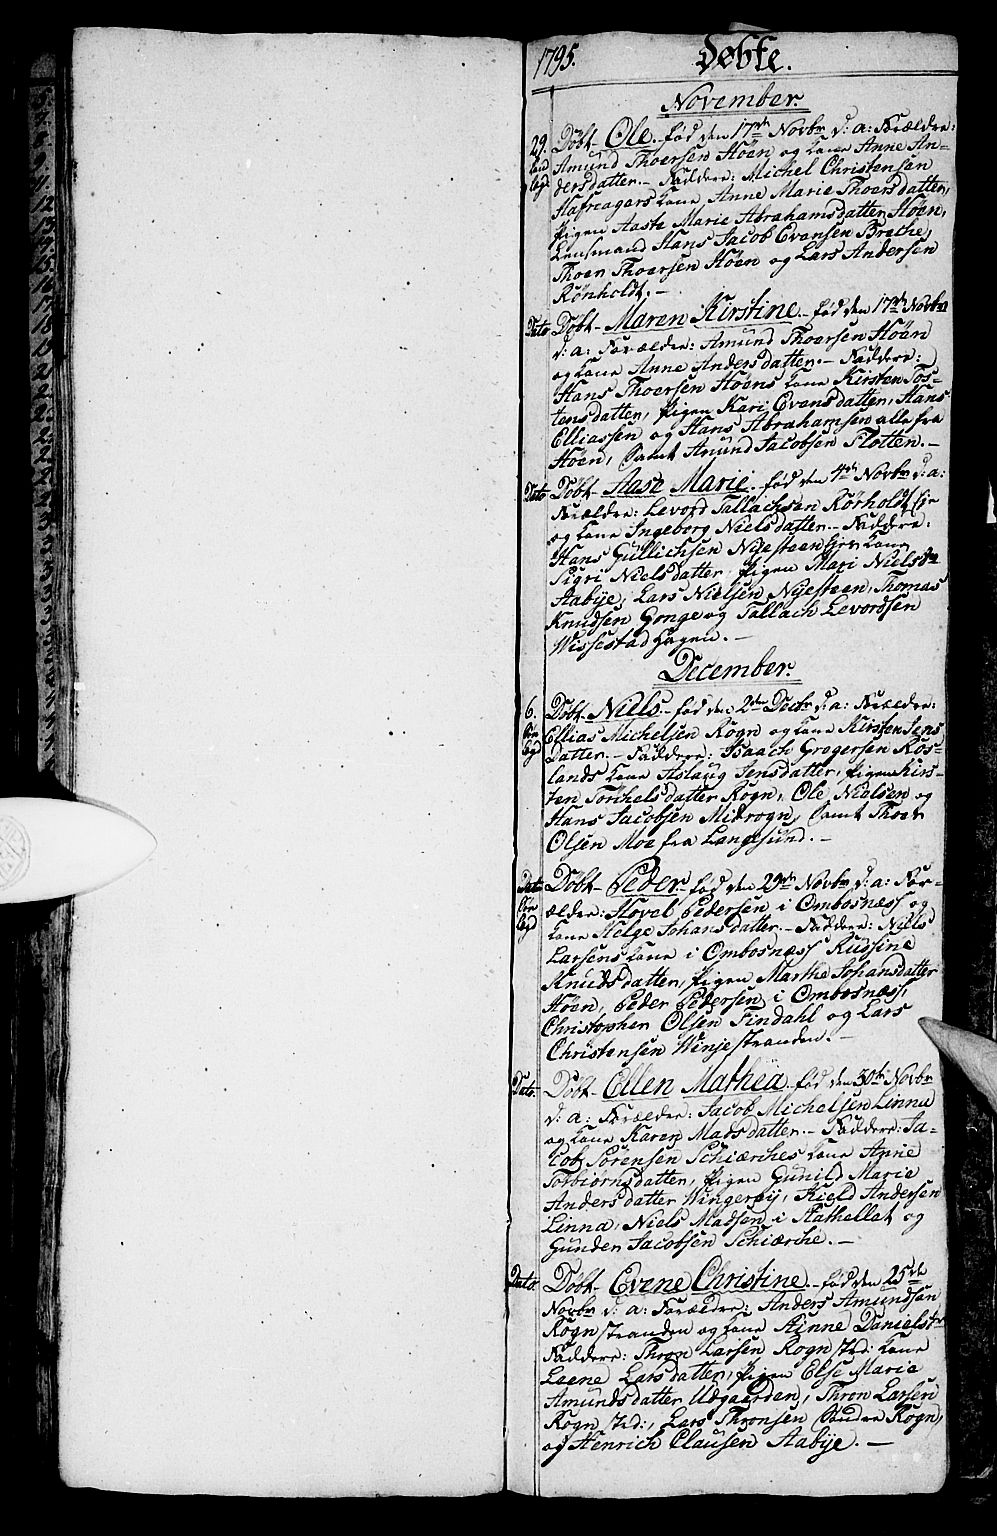 1795. Døbte.
November.
29. Døbt Ole. født den 17de Novbr d: a: Forældre:
Amund Thoersen Höen og kone Anne An-
dersdatter. - Faddere: Michel Christensen
Hafreagers kone, Anne Marie Thoersdatter,
Pigen Aaste Marie Abrahamsdatter Höen,
Lensmand Hans Jacob Evensen Breche,
Thoer Thoersen Höen og Lars Andersen
Rönholdt. -
Dato Døbt Maren Kirstine. født den 17de Novbr
d: a: Forældre: Amund Thoersen Höen
og kone Anne Andersdatter. - Faddere:
Hans Thoersen Höens kone Kirsten Tos-
tensdatter, Pigen Kari Evensdatter, Hans
Elliassen og Hans Abrahamsen alle fra
Höen, samt Amund Jacobsen Flotten. -
Dato Døbt Aase Marie. født den 4de Novbr d: a:
Forældre: Levord Tallachsen Rörholdt Eje
og kone Ingeborg Nielsdatter. - Faddere:
Hans Gullichsen Nyesteen Ejes kone
Sigri Nielsdatter, Pigen Mari Nielsdtr
Aabye, Lars Nielsen Nyesteen, Thomas
Knudsen Gonge og Tallach Levordsen
Wissestad Hagen. -
December.
6. Døbt Niels. født den 2den Decbr d: a: Forældre:
Ellias Michelsen Rogn og kone Kirsten Jens
Datter. - Faddere: Isaach Gregersen Ros-
lands kone Aslaug Jensdatter, Pigen Kirs-
ten Torchelsdatter Rogn, Ole Nielsen og
Hans Jacobsen Midrogn, samt Thoer
Olsen Moe fra Langesund. -
Dato Døbt Peder født den 29de Novbr d: a: For-
ældre: Hovel Pedersen i Ombosnæss og
kone Helge Johansdatter. - Faddere: Niels
Larsens kone i Ombosnæss Russine
Knudsdatter, Pigen Marthe Johansdatter
Höen, Peder Pedersen i Ombosnæss,
Christopher Olsen Findahl og Lars
Christensen Winjestranden. -
Dato. Døbt Ellen Mathea. født den 30te Novbr
d: a: Forældre: Jacob Michelsen Linna
og kone Karen Madsdatter. - Faddere: Ja-
cob Sörensen Schiærches kone Anne
Torbiørnsdatter, Pigen Gunild Marie
Andersdatter Wingereij, Kield Andersen
Linna, Niels Madsen i Stathellat og
Gunder Jacobsen Schiærche. -
Dato. Døbt Evene Christine. født den 25de
Novbr d: a: Forældre: Anders Amundsen
Rogn stranden og kone Anne Danielsdtr
Faddere: Thron Larsen Rogn std: kone
Leene Larsdatter, Pigen Else Maria
Amundsdatter Udgaarden, Thron Larsen
Rogn std:, Lars Thronsen Søndre Rogn,
og Henrich Clausen Aabye. -